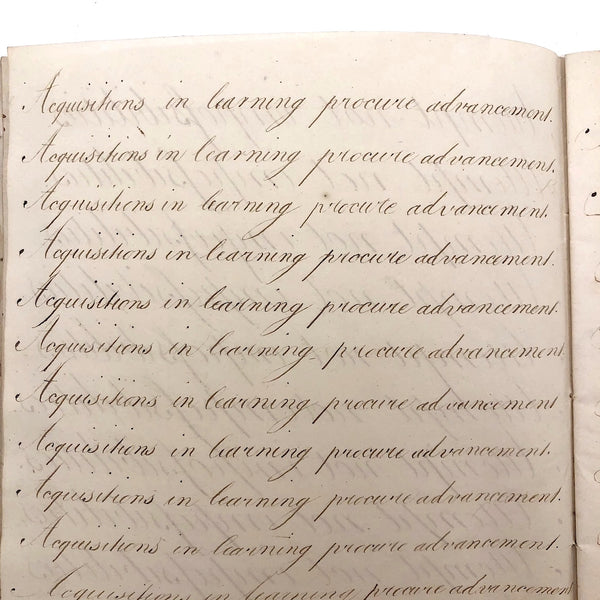 Acquisitions in learning procure advancement.
Acquisitions in learning procure advancement.
Acquisitions in learning procure advancement.
Acquisitions in learning procure advancement.
Acquisitions in learning procure advancement.
Acquisitions in learning procure advancement
Acquisitions in learning procure advancement
Acquisitions in learning procure advancement.
Acquisitions in learning procure advancement.
Acquisitions in learning procure advancement.
Acquisitions in learning procure advancement